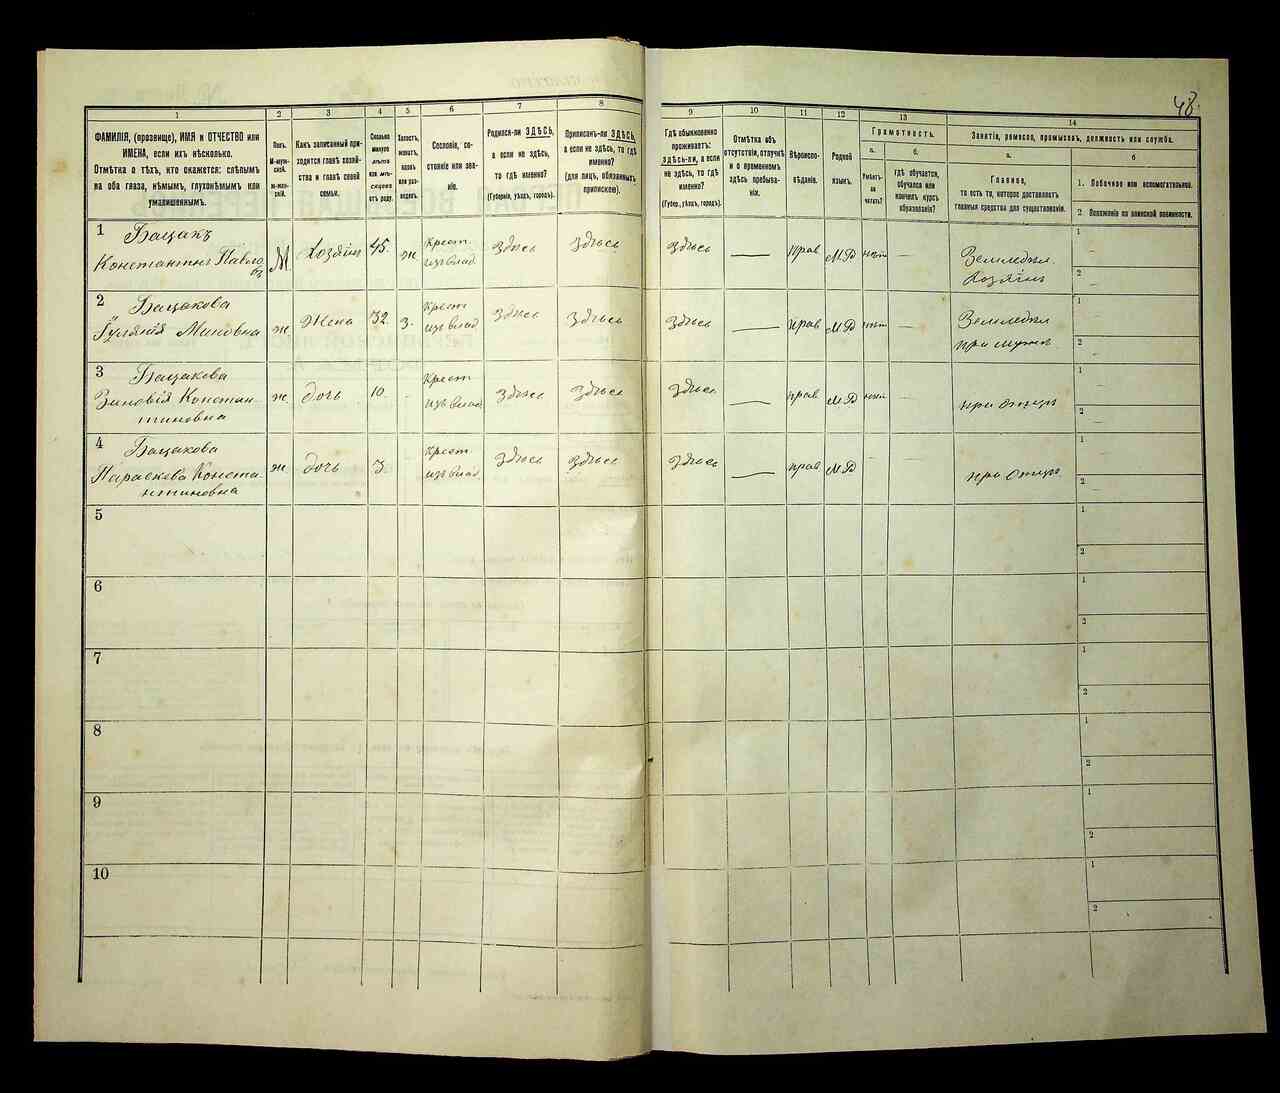 48.
1
2
3
4
5
6
7
8
9
10
11
12
13
14
ФАМИЛІЯ, (прозвище), ИМЯ и ОТЧЕСТВО или
ИМЕНА, если ихъ нѣсколько.
Отмѣтка о тѣхъ, кто окажется: слѣпымъ
на оба глаза, нѣмымъ, глухонѣмымъ или
умалишеннымъ.
Полъ.
М-муж-
ской.
Ж-жен-
скій.
Какъ записанный при-
ходится главѣ хозяй-
ства и главѣ своей
семьи.
Сколько
минуло
лѣтъ
или мѣ-
сяцевъ
отъ роду.
Холостъ,
женатъ,
вдовъ
или раз-
веденъ.
Сословіе, со-
стояніе или зва-
ніе.
Родился-ли ЗДѢСЬ,
а если не здѣсь,
то гдѣ именно?
(Губернія, уѣздъ, городъ).
Приписанъ-ли ЗДѢСЬ,
а если не здѣсь, то гдѣ
именно?
(для лицъ, обязанныхъ
припискою).
Гдѣ обыкновенно
проживаетъ:
ЗДѢСЬ-ЛИ, а если
не здѣсь, то гдѣ
именно?
(Губер., уѣздъ, городъ).
Отмѣтка объ
отсутствіи, отлучкѣ
и о временномъ
здѣсь пребыва-
ніи.
Вѣроиспо-
вѣданіе.
Родной
языкъ.
Грамотность.
а.
б.
Умѣетъ-
ли
читать?
гдѣ обучается,
обучался или
кончилъ курсъ
образованія?
Занятіе, ремесло, промыселъ, должность или служба.
а.
б
Главное,
то есть то, которое доставляетъ
главныя средства для существованія.
1. Побочное или вспомогательное.
2 Положеніе по воинской повинности.
1 Бацакъ
Константинъ Павло
въ
М
Хозяин
45.
ж
Крест
изъ влад.
Здѣсь
Здѣсь
Здѣсь
Прав
М.Р
нѣт
Земледѣл.
Хозяїнъ
1
2
2 Бацакова
Мановна
ж
Жена
32
З.
Крест
изъ влад
Здѣсь
Здѣсь
Здѣсь
Прав
М.Р
нѣт
Земледѣл
при мужѣ
1
2
3 Бацакова
Зиновія Констан-
тиновна
ж.
дочь
10
Крест
изъ влад
Здѣсь
Здѣсь
Здѣсь
прав
М.Р
нѣт
при Отцѣ
1
2
4 Бацакова
Параскева Конста-
нтиновна
ж
дочь
3
Крест.
изъ влад.
Здѣсь
Здѣсь
Здѣсь
прав
М.Р
при Отцѣ
1
2
5
1
2
6
1
2
7
1
2
8
1
2
9
1
2
10
1
2